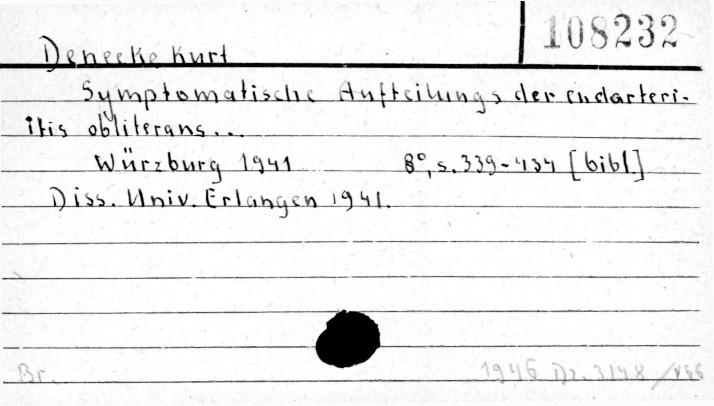 108232
Denecke Kurt
Symptomatische Aufteilungs der endarteri-
itis obliterans...
Würzburg 1941 8°, s. 339-434 [bibl]
Diss. Univ. Erlangen 1941.
Br. 1946 Dz. 3148